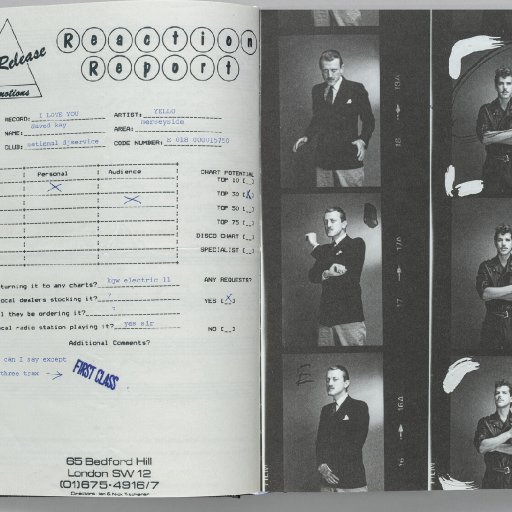 Release
Reaction
Report
motions
RECORD: I LOVE YOU
ARTIST: YELLO
NAME: david kay
AREA: merseyside
CLUB: national djservice
CODE NUMBER: E 018 000015750
Personal
Audience
CHART POTENTIAL
TOP 10
TOP 30 [X]
TOP 50
TOP 75
DISCO CHART
SPECIALIST
turning it to any charts? kqw electric 11
ANY REQUESTS?
ocal dealers stocking it? ?
YES [X]
l they be ordering it? ?
ocal radio station playing it? yes sir
NO
Additional Comments?
can I say except
three trax ->
FIRST CLASS
65 Bedford Hill
London SW 12
(01)675-4916/7
Directors: Ian & Nick Titchener
19A
18
17A
17
16A
16